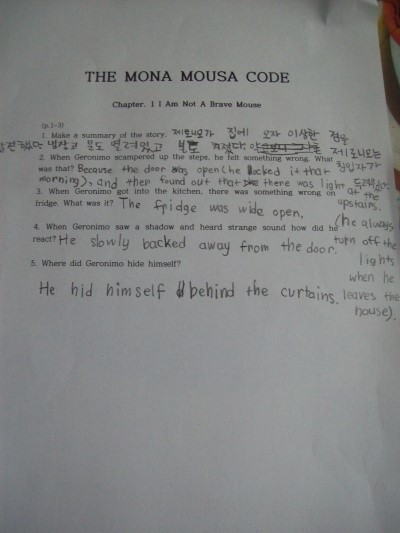 THE MONA MOUSA CODE
Chapter. 1 I Am Not A Brave Mouse
(p.1-3)
1. Make a summary of the story. 제로니모가 집에 오자 이상한 점을
냉장고 문도 열려있고 불도 켜졌다. 제로니모는
침입자가
2. When Geronimo scampered up the steps, he felt something wrong. What
was that? Because the door was open (he locked it that
morning), and then found out that there was light at the
upstairs.
(he always
turn off the
lights
when he
leaves the
house).
3. When Geronimo got into the kitchen, there was something wrong on
fridge. What was it? The fridge was wide open.
4. When Geronimo saw a shadow and heard strange sound how did he
react? He slowly backed away from the door.
5. Where did Geronimo hide himself?
He hid himself behind the curtains.